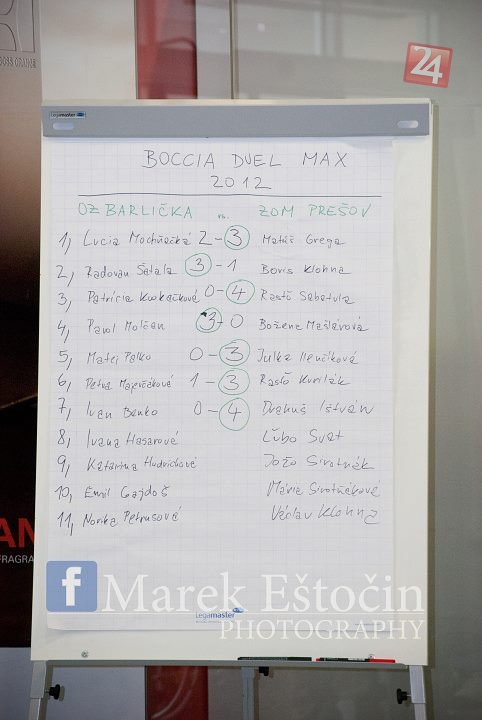 24
Legamaster
BOCCIA DUEL MAX
2012
OZ BARLIČKA vs. ZOM PREŠOV
1, Lucia Mochňacká 2-3 Matúš Grega
2, Radovan Šatala 3-1 Boris Klohna
3, Patrícia 0-4 Rasťo Sabatula
4, Pavol Molčan 3-0 Božena Mašlárová
5, Matej Palko 0-3 Julka
6, Petra 1-3 Rasťo Kurilák
7, Ivan Benko 0-4 Drahuš István
8, Ivana Hasarová Ľubo Svat
9, Katarína Hudvičková Jožo Sirotňák
10, Emil Gajdoš Mária Sirotňáková
11, Norika Petrusová Václav Klohna
FRAGRA
f Marek Eštočin
Legamaster
PHOTOGRAPHY